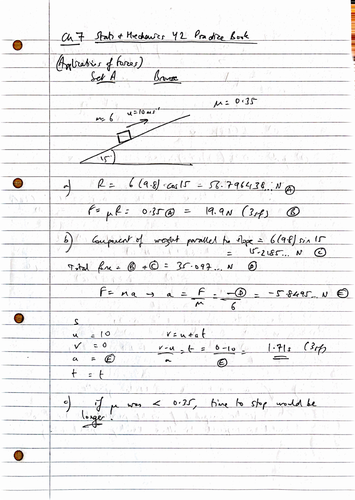 Ch 7 Stats + Mechanics Y2 Practice Book
(Applications of Forces)
Set A Bronze
μ = 0.35
m=6 u=10ms⁻¹
15°
a) R = 6(9.8)·cos15 = 56.796438... N Ⓐ
F = μR = 0.35Ⓐ = 19.9N (3sf) Ⓑ
b) Component of weight parallel to slope = 6(9.8) sin 15
= 15.2185... N Ⓒ
Total force = Ⓑ + Ⓒ = 35.097... N Ⓓ
F = ma → a = F/m = -Ⓓ/6 = -5.8495... N Ⓔ
s
u = 10 v = u+at
v = 0 (v-u)/a = t = (0-10)/Ⓔ = 1.71s (3sf)
a = Ⓔ
t = t
c) if μ was < 0.35, time to stop would be
longer.